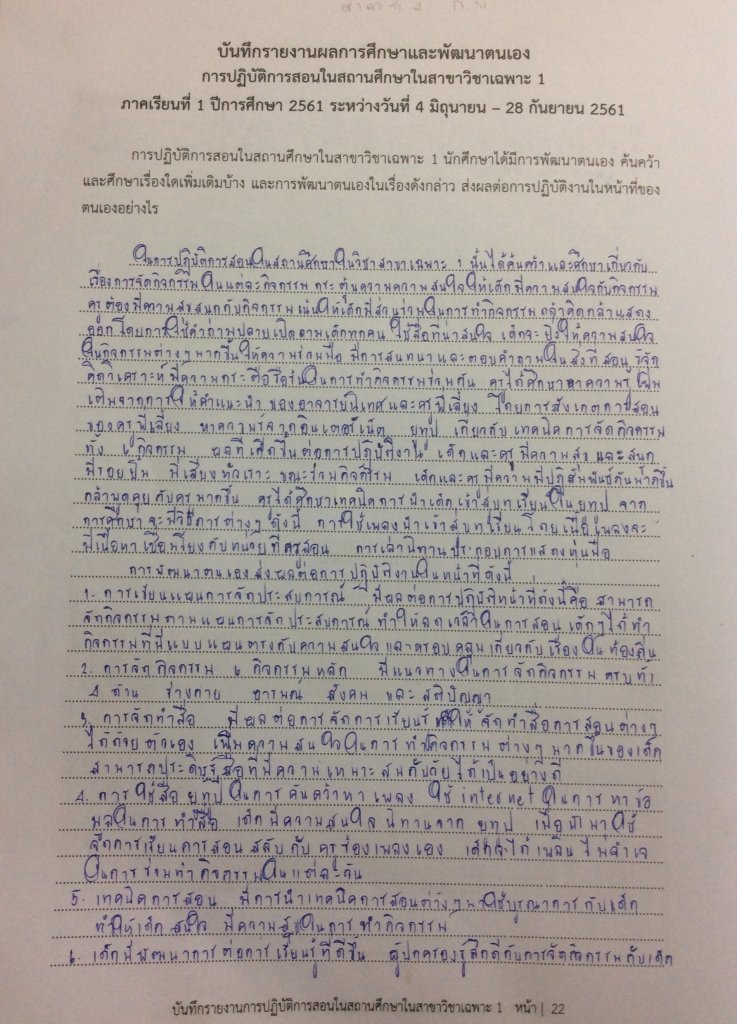 บันทึกรายงานผลการศึกษาและพัฒนาตนเอง
การปฏิบัติการสอนในสถานศึกษาในสาขาวิชาเฉพาะ 1
ภาคเรียนที่ 1 ปีการศึกษา 2561 ระหว่างวันที่ 4 มิถุนายน – 28 กันยายน 2561
การปฏิบัติการสอนในสถานศึกษาในสาขาวิชาเฉพาะ 1 นักศึกษาได้มีการพัฒนาตนเอง ค้นคว้า
และศึกษาเรื่องใดเพิ่มเติมบ้าง และการพัฒนาตนเองในเรื่องดังกล่าว ส่งผลต่อการปฏิบัติงานในหน้าที่ของ
ตนเองอย่างไร
ในการปฏิบัติการสอนในสถานศึกษาในวิชาสาขาเฉพาะ 1 นั้นได้ค้นคว้าและศึกษาเกี่ยวกับ
เรื่องการจัดกิจกรรมในแต่ละกิจกรรม กระตุ้นความความสนใจให้เด็กมีความสนใจกับกิจกรรม
ครูต้องมีความสุขสนุกกับกิจกรรมเน้นให้เด็กมีส่วนร่วมในการทำกิจกรรม กล้าคิดกล้าแสดง
ออกโดยการใช้คำถามปลายเปิดถามเด็กทุกคน ใช้สื่อที่น่าสนใจ เด็กจะยิ่งให้ความสนใจ
ในกิจกรรมต่างๆมากขึ้นให้ความร่วมมือ มีการสนทนาและตอบคำถามในสิ่งที่สอน รู้จัก
คิดวิเคราะห์ มีความกระตือรือร้นในการทำกิจกรรมร่วมกัน ครูได้ศึกษาหาความรู้เพิ่ม
เติมจากการให้คำแนะนำของอาจารย์นิเทศและครูพี่เลี้ยง โดยการสังเกตการสอน
ของครูพี่เลี้ยง หาความรู้จากอินเตอร์เน็ต ยูทูป เกี่ยวกับเทคนิคการจัดกิจกรรม
ทั้ง ๖ กิจกรรม ผลที่เกิดขึ้นต่อการปฏิบัติงานใน เด็กและครู มีความสุข และสนุก
มีรอยยิ้ม มีเสียงหัวเราะ ขณะร่วมกิจกรรม เด็กและครูมีความมีปฏิสัมพันธ์กันมากขึ้น
กล้าพูดคุยกับครูมากขึ้น ครูได้ศึกษาเทคนิคการนำเด็กเข้าสู่บทเรียนในยูทูป จาก
การศึกษา จะมีวิธีการต่างๆ ดังนี้ การใช้เพลงนำเข้าสู่บทเรียน โดยเนื้อในเพลงจะ
มีเนื้อหาเชื่อมโยงกับหน่วยที่ครูสอน การเล่านิทานประกอบการแสดงหุ่นมือ
การพัฒนาตนเองส่งผลต่อการปฏิบัติงานในหน้าที่ดังนี้
1. การเขียนแผนการจัดประสบการณ์ มีผลต่อการปฏิบัติหน้าที่ดังนี้คือ สามารถ
จัดกิจกรรมตามแผนการจัดประสบการณ์ ทำให้ลดเวลาในการสอน เด็กๆได้ทำ
กิจกรรมที่มีแบบแผนตรงกับความสนใจ และครอบคลุมเกี่ยวกับเรื่องในท้องถิ่น
2. การจัดกิจกรรม ๖ กิจกรรมหลัก มีแนวทางในการจัดกิจกรรมครบทั้ง
4 ด้าน ร่างกาย อารมณ์ สังคม และสติปัญญา
3. การจัดทำสื่อ มีผลต่อการจัดการเรียนรู้ ให้จัดทำสื่อการสอนต่างๆ
ได้ด้วยตัวเอง เพิ่มความสนใจในการทำกิจกรรมต่างๆมากขึ้นของเด็ก
สามารถประดิษฐ์สื่อที่มีความเหมาะสมกับวัยได้เป็นอย่างดี
4. การใช้สื่อ ยูทูปในการค้นคว้าหาเพลง ใช้ internet ในการหาข้อ
มูลในการทำสื่อ เด็กมีความสนใจนิทานจาก ยูทูป เพื่อนำมาใช้
จัดการเรียนการสอน สลับกับครูร้องเพลงเอง เด็กได้เพลิดเพลิน
ในการร่วมทำกิจกรรมในแต่ละวัน
5. เทคนิคการสอน มีการนำเทคนิคการสอนต่างๆมาใช้บูรณาการกับเด็ก
ทำให้เด็กสนใจ มีความสุขในการทำกิจกรรม
๖. เด็กมีพัฒนาการต่อการเรียนรู้ที่ดีขึ้น ผู้ปกครองรู้สึกดีกับการจัดกิจกรรมกับเด็ก
บันทึกรายงานการปฏิบัติการสอนในสถานศึกษาในสาขาวิชาเฉพาะ 1 หน้า | 22